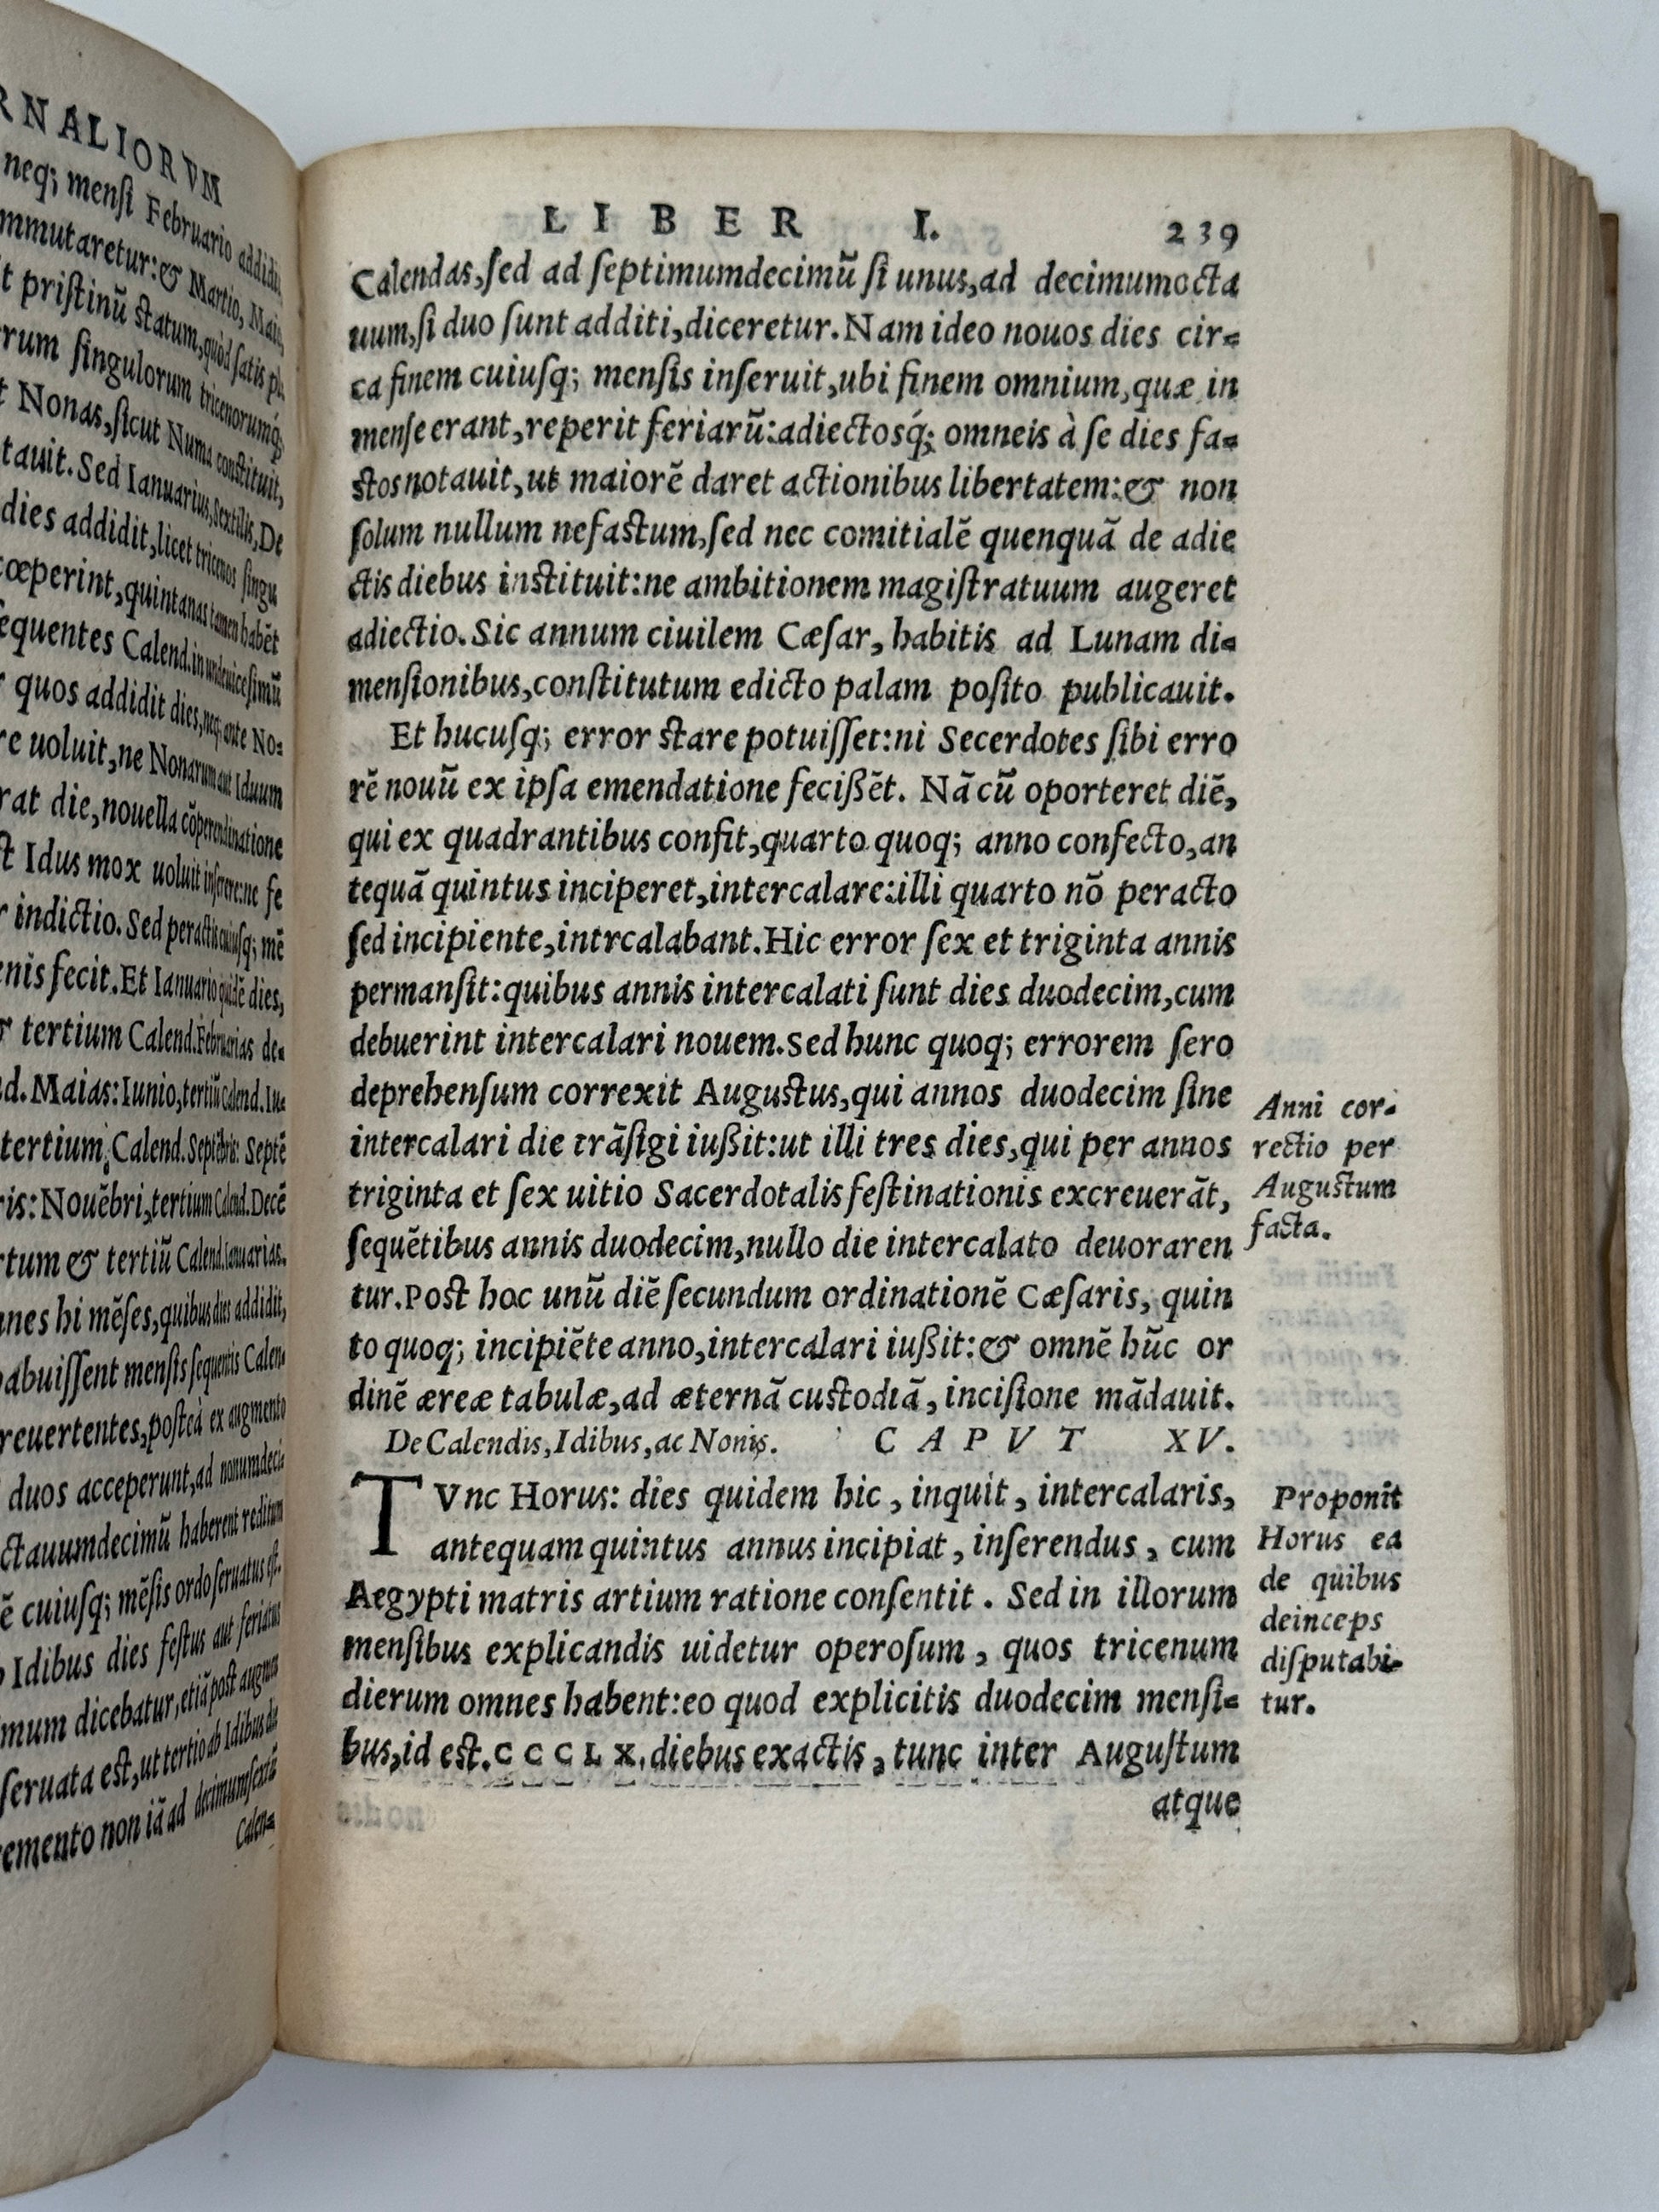 RNALIORVM
neq; mensi Februario addidit,
mmutaretur:& Martio, Maio,
t pristinũ statum,quòd satis
rum singulorum tricenorumq́;
Nonas,sicut Numa constituit,
tauit.Sed Ianuarius,Sextilis,De
dies addidit,licet tricenos singu
cœperint,quintanas tamen habẽt
equentes Calend.in undeuicesimũ
quos addidit dies,neq; ante No=
re uoluit,ne Nonarum aut Iduum
rat die,nouella cõperendinatione
Idus mox uoluit inserere:ne fe
indictio.Sed peractis cuiusq; mẽ
nis fecit.Et Ianuario quidẽ dies,
tertium Calend.Februarias de=
d.Maias:Iunio,tertiũ Calend.Iu=
tertium,Calend.Septẽbris: Septẽ
ris:Nouẽbri,tertium Calend.Decẽ
rtum & tertiũ Calend.Ianuarias.
nes hi mẽses,quibus dies addidit,
abuissent mensis sequentis Calen=
reuertentes,posteà ex augmento
duos acceperunt,ad nonumdeci=
ctauumdecimũ haberent reditum
ẽ cuiusq; mẽsis ordo seruatus est.
Idibus dies festus aut feriatus
mum dicebatur,etiã post augmen
seruata est,ut tertio ab Idibus die
emento non iã ad decimumsextũ
Calen=
LIBER I. 239
Calendas,sed ad septimumdecimũ si unus,ad decimumocta
uum,si duo sunt additi,diceretur.Nam ideo nouos dies cir=
ca finem cuiusq; mensis inseruit,ubi finem omnium,quæ in
mense erant,reperit feriarũ:adiectosq́; omneis à se dies fa=
stos notauit,ut maiorẽ daret actionibus libertatem:& non
solum nullum nefastum,sed nec comitialẽ quenquã de adie
ctis diebus instituit:ne ambitionem magistratuum augeret
adiectio.Sic annum ciuilem Cæsar, habitis ad Lunam di=
mensionibus,constitutum edicto palam posito publicauit.
Et hucusq; error stare potuisset:ni Secerdotes sibi erro
rẽ nouũ ex ipsa emendatione fecißẽt. Nã cũ oporteret diẽ,
qui ex quadrantibus confit,quarto quoq; anno confecto,an
tequã quintus inciperet,intercalare:illi quarto nõ peracto
sed incipiente,intrcalabant.Hic error sex et triginta annis
permansit:quibus annis intercalati sunt dies duodecim,cum
debuerint intercalari nouem.Sed hunc quoq; errorem sero
deprehensum correxit Augustus,qui annos duodecim sine
intercalari die trãsigi iußit:ut illi tres dies,qui per annos
triginta et sex uitio Sacerdotalis festinationis excreuerãt,
sequẽtibus annis duodecim,nullo die intercalato deuoraren
tur.Post hoc unũ diẽ secundum ordinationẽ Cæsaris, quin
to quoq; incipiẽte anno,intercalari iußit:& omnẽ hũc or
dinẽ æreæ tabulæ,ad æternã custodiã, incisione mãdauit.
De Calendis,Idibus,ac Nonis. CAPVT XV.
TVnc Horus: dies quidem hic, inquit, intercalaris,
antequam quintus annus incipiat, inserendus, cum
Aegypti matris artium ratione consentit. Sed in illorum
mensibus explicandis uidetur operosum, quos tricenum
dierum omnes habent:eo quod explicitis duodecim mensi=
bus,id est.CCCLX.diebus exactis, tunc inter Augustum
atque
Anni cor=
rectio per
Augustum
facta.
Proponit
Horus ea
de quibus
deinceps
disputabi=
tur.